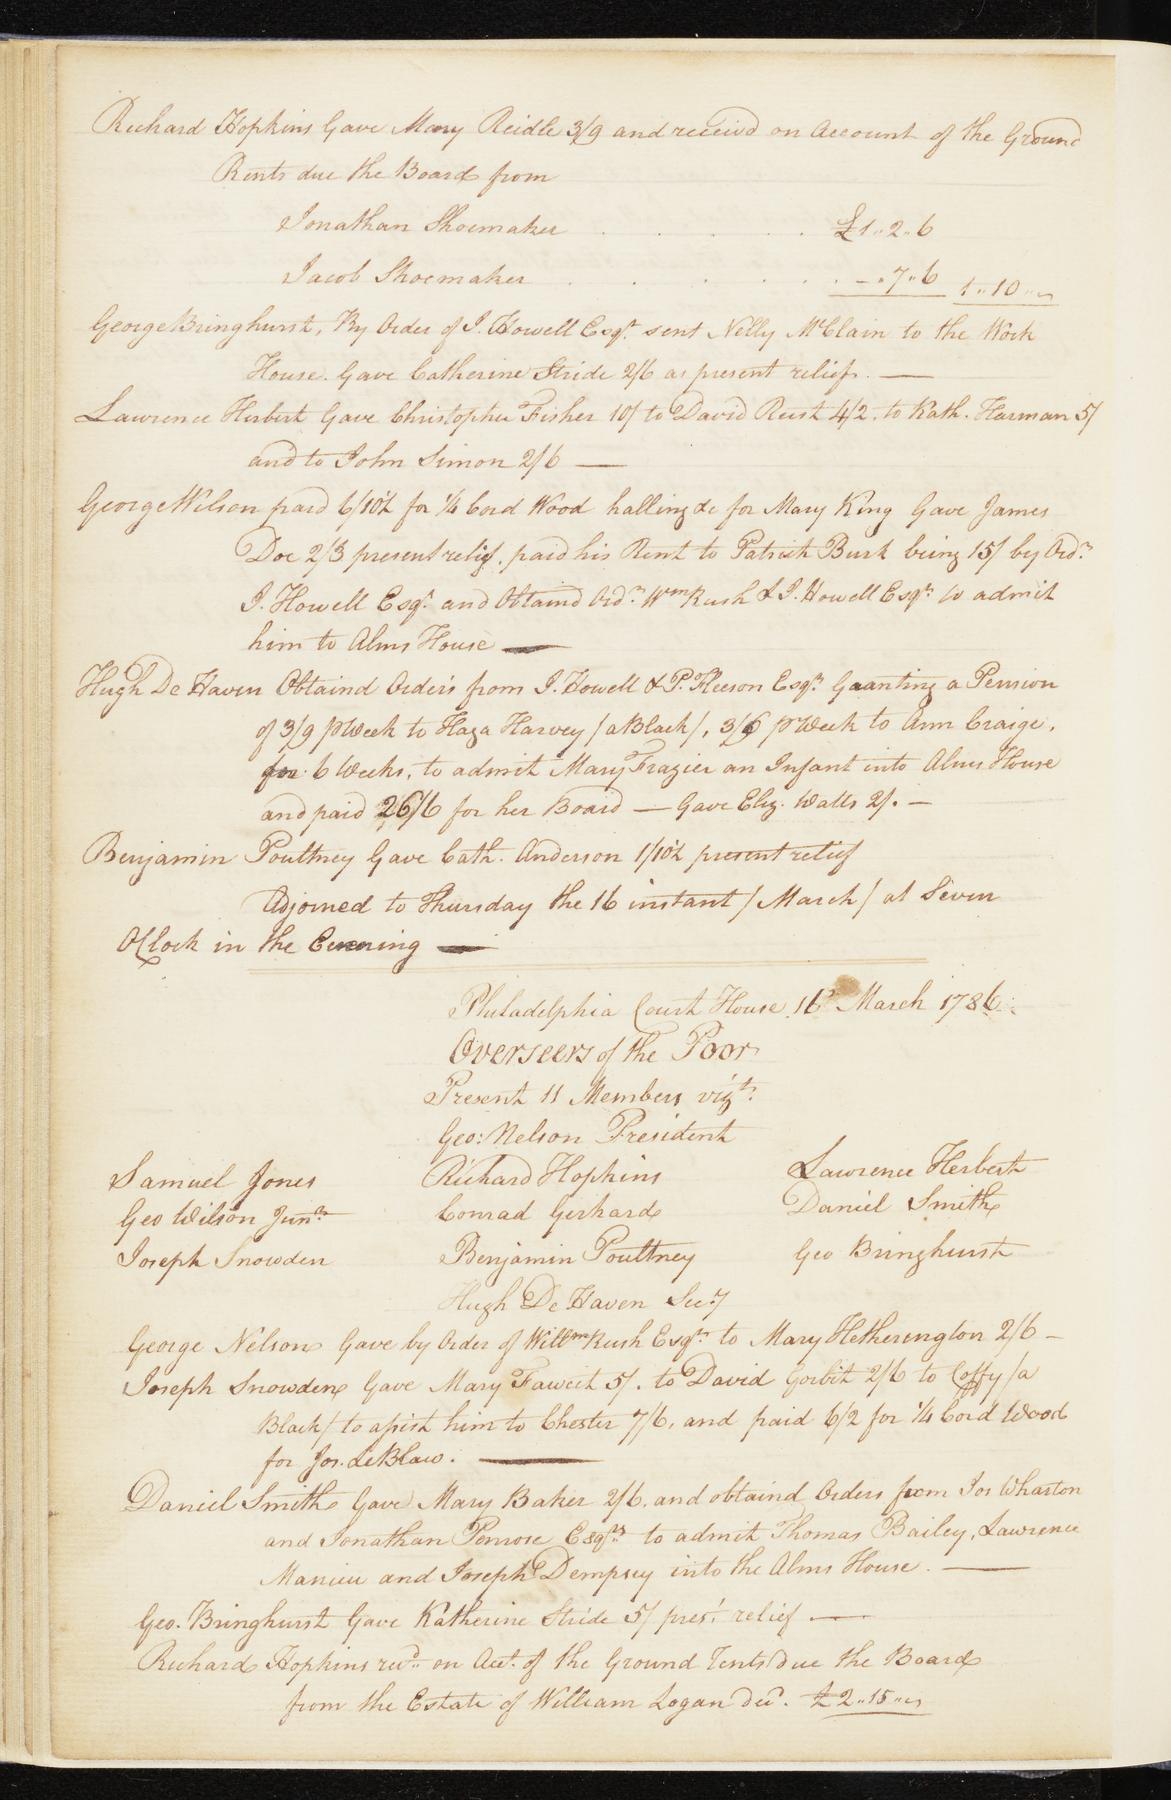 Richard Hopkins Gave Mary Reidle 3/9 and receivd on Account of the Ground
Rents due the Board from
Jonathan Shoemaker . . . . . £1 .. 2 .. 6
Jacob Shoemaker . . . . . - .. 7 .. 6 1 .. 10 .. -
George Bringhurst, By Order of J. Howell Esqr. sent Nelly McClain to the Work
House. Gave Catherine Stride 2/6 as present relief. —
Lawrence Herbert Gave Christopher Fisher 10/ to David Rust 4/2. to Kath. Harman 5/
and to John Simon 2/6 —
George Wilson paid 6/10½ for ¼ Cord Wood halling &c for Mary King Gave James
Doe 2/3 present relief. paid his Rent to Patrick Burk being 15/ by Ordr.
J. Howell Esqr. and Obtaind Ordr. Wm Rush & J. Howell Esqrs. to admit
him to Alms House —
Hugh De Haven Obtaind Orders from J. Howell & P. Fleeson Esqrs. Graanting a Pension
of 3/9 p Week to Haga Harvey / a Black /, 3/6 p Week to Ann Craige,
for 6 Weeks, to admit Mary Frazier an Infant into Alms House
and paid 26/6 for her Board — Gave Eliz. Watts 2/. —
Benjamin Poultney Gave Cath. Anderson 1/10½ present relief
Adjorned to Thursday the 16 instant / March / at Seven
OClock in the Evening —
Philadelphia Court House 16 March 1786
Overseers of the Poor
Present 11 Members vizt.
Geo: Nelson President
Samuel Jones Richard Hopkins Lawrence Herbert
Geo Wilson Junr. Conrad Gerhard Daniel Smith
Joseph Snowden Benjamin Poultney Geo Bringhurst
Hugh De Haven Secy
George Nelson Gave by Order of Willm Rush Esqr. to Mary Hetherington 2/6 —
Joseph Snowden Gave Mary Fawcit 5/. to David Gorbit 2/6 to Coffy / a
Black / to assist him to Chester 7/6, and paid 6/2 for ¼ Cord Wood
for Jos. LeBlaw. —
Daniel Smith Gave Mary Baker 2/6, and obtaind Orders from Jos Wharton
and Jonathan Penrose Esqrs. to admit Thomas Bailey, Lawrence
and Joseph Dempsey into the Alms House. —
Geo. Bringhurst Gave Katherine Stride 5/ prest. relief —
Richard Hopkins recd. on Acct. of the Ground Tents due the Board
from the Estate of William Logan decd. £2 .. 15 .. -